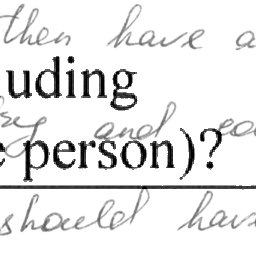 then have a
uding
and
person)?
should have